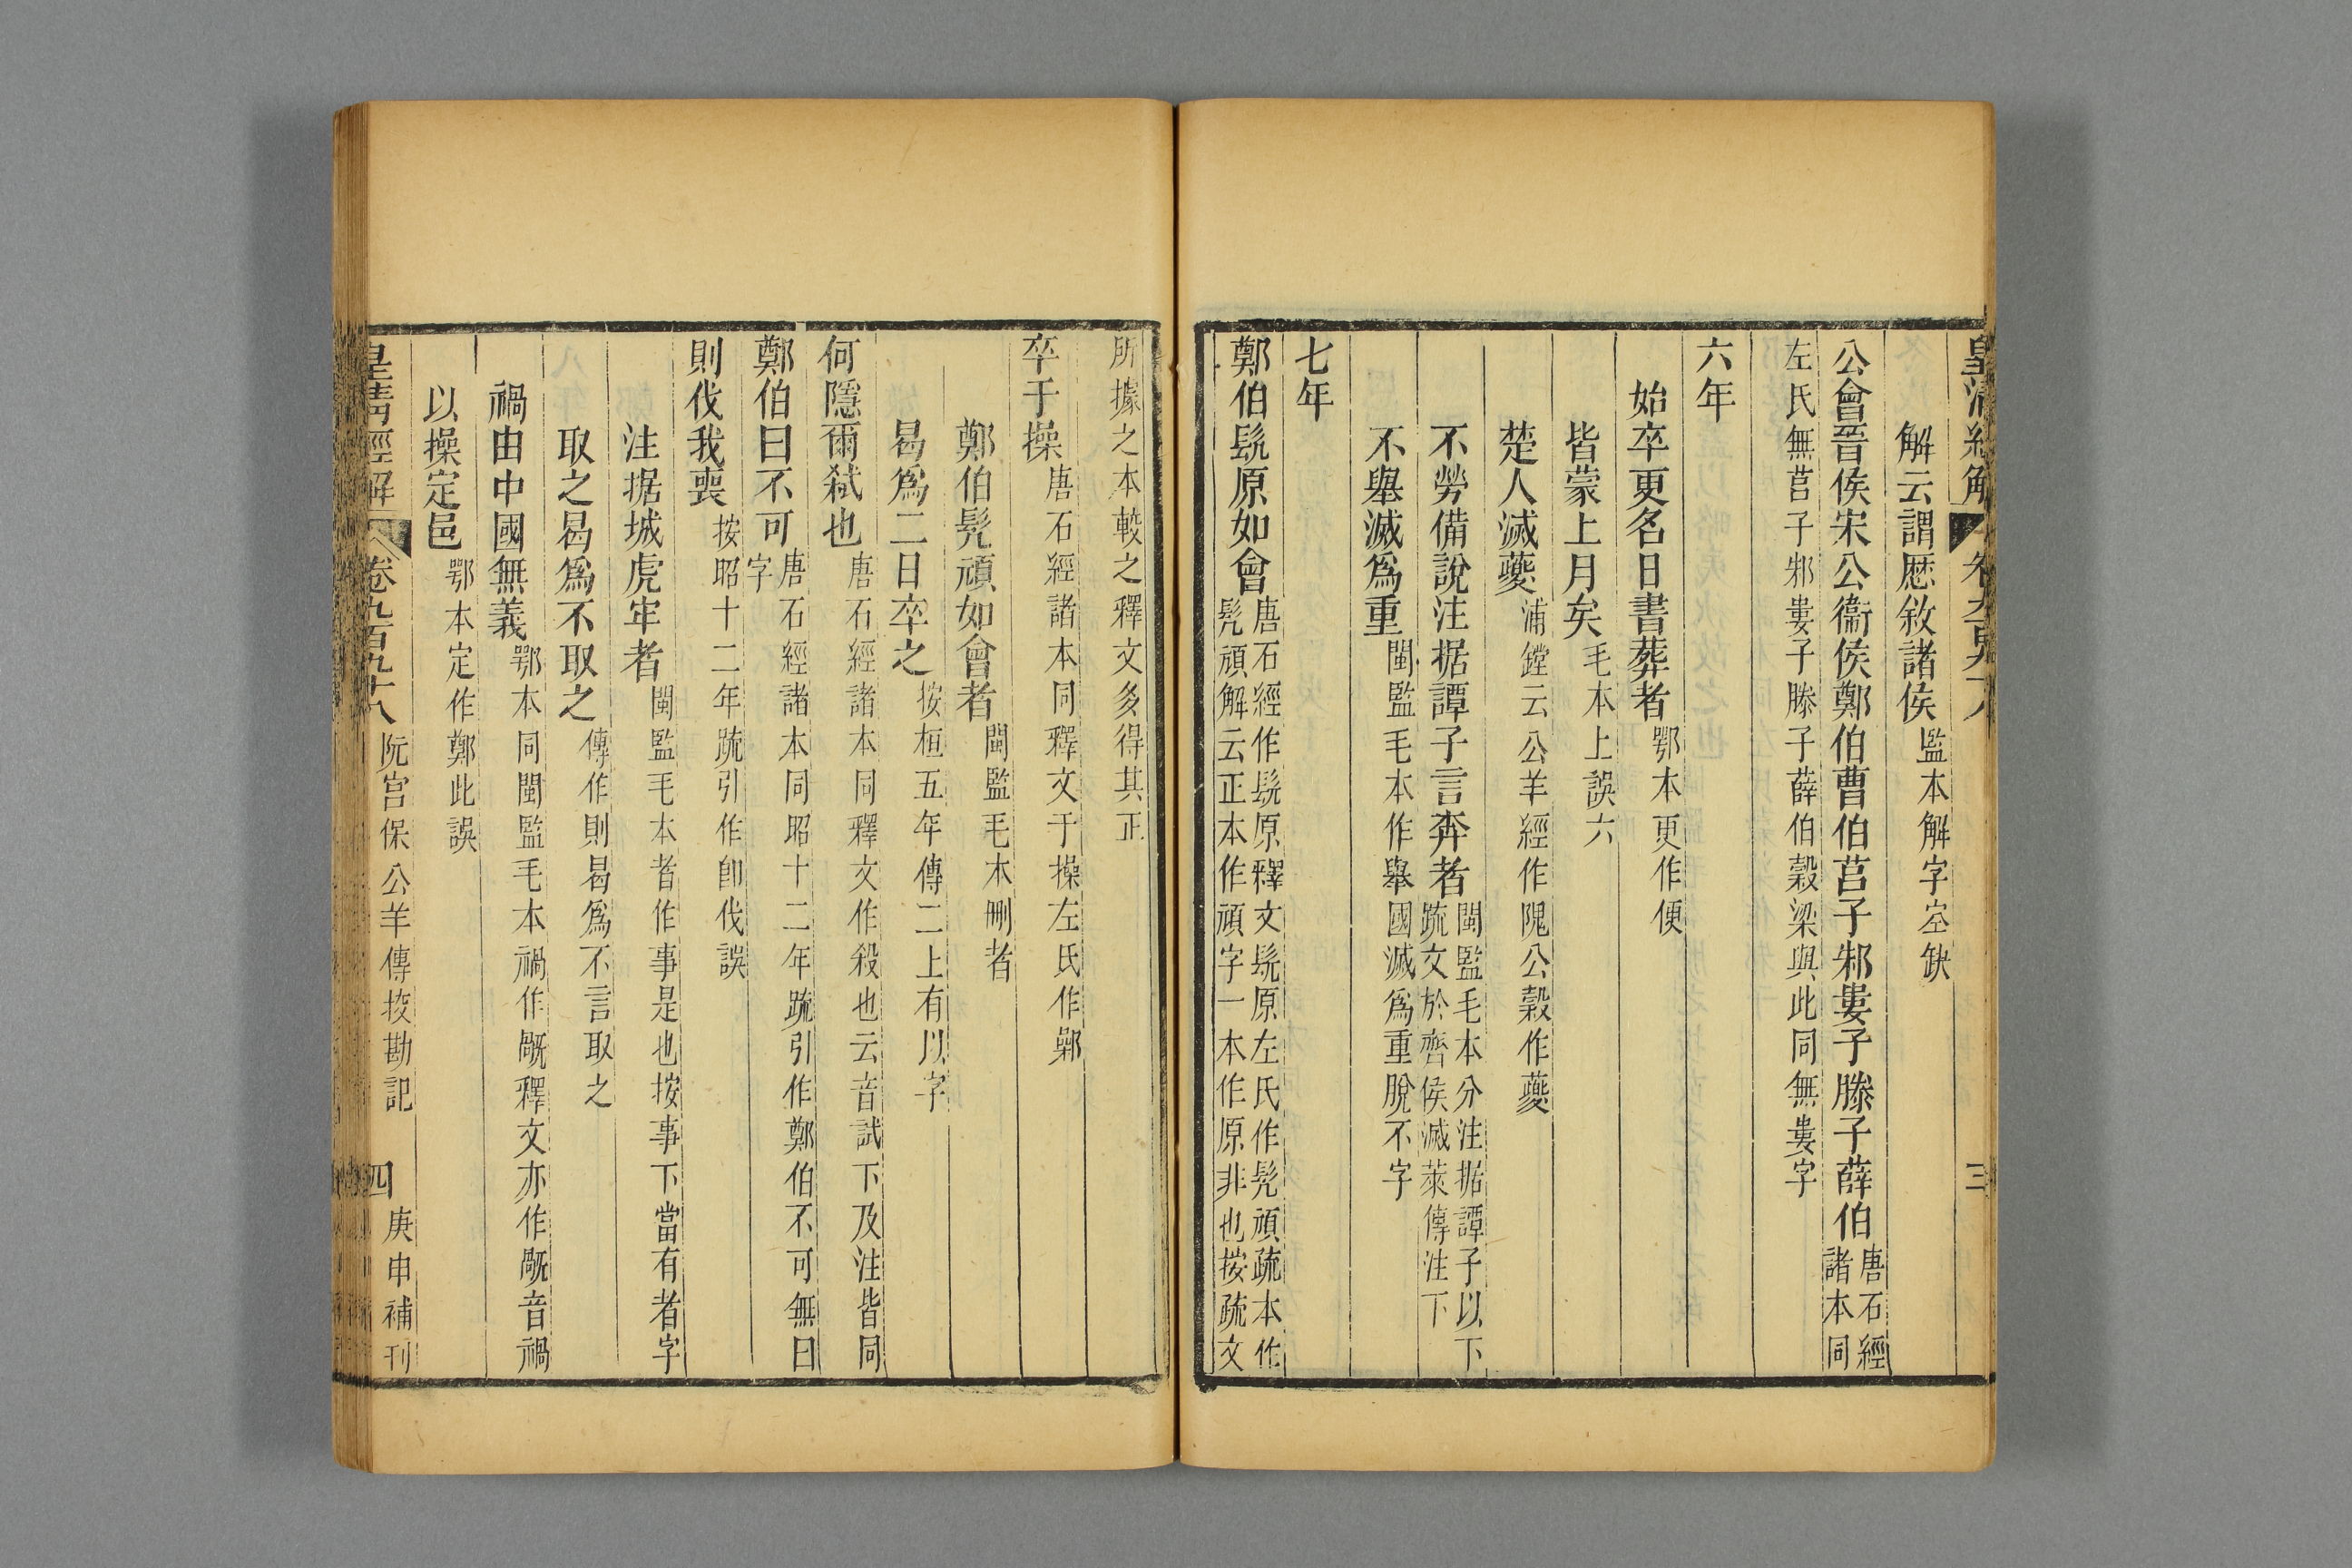 皇清經解 卷九百九十八 三
解云謂歷敘諸侯監本解字空缺
公會晉侯宋公衞侯鄭伯曹伯莒子邾婁子滕子薛伯唐石經諸本同
左氏無莒子邾婁子滕子薛伯穀梁與此同無婁字
六年
始卒更名日書葬者鄂本更作便
皆蒙上月矣毛本上誤六
楚人滅夔浦鏜云公羊經作隗公穀作夔
不勞備說注据譚子言奔者閩監毛本分注据譚子以下疏文於齊侯滅萊傳注下
不舉滅爲重閩監毛本作舉國滅爲重脫不字
七年
鄭伯髡原如會唐石經作髡原釋文髡原左氏作髠頑疏本作髠頑解云正本作頑字一本作原非也按疏文
所據之本較之釋文多得其正
卒于操唐石經諸本同釋文于操左氏作鄵
鄭伯髠頑如會者閩監毛本刪者
曷爲二日卒之按桓五年傳二上有以字
何隱爾弒也唐石經諸本同釋文作殺也云音試下及注皆同
鄭伯曰不可唐石經諸本同昭十二年疏引作鄭伯不可無曰字
則伐我喪按昭十二年疏引作卽伐誤
注据城虎牢者閩監毛本者作事是也按事下當有者字
取之曷爲不取之傳作則曷爲不言取之
禍由中國無義鄂本同閩監毛本禍作旤釋文亦作旤音禍
以操定邑鄂本定作鄭此誤
皇清經解 卷九百九十八 阮宮保公羊傳挍勘記 四 庚申補刊